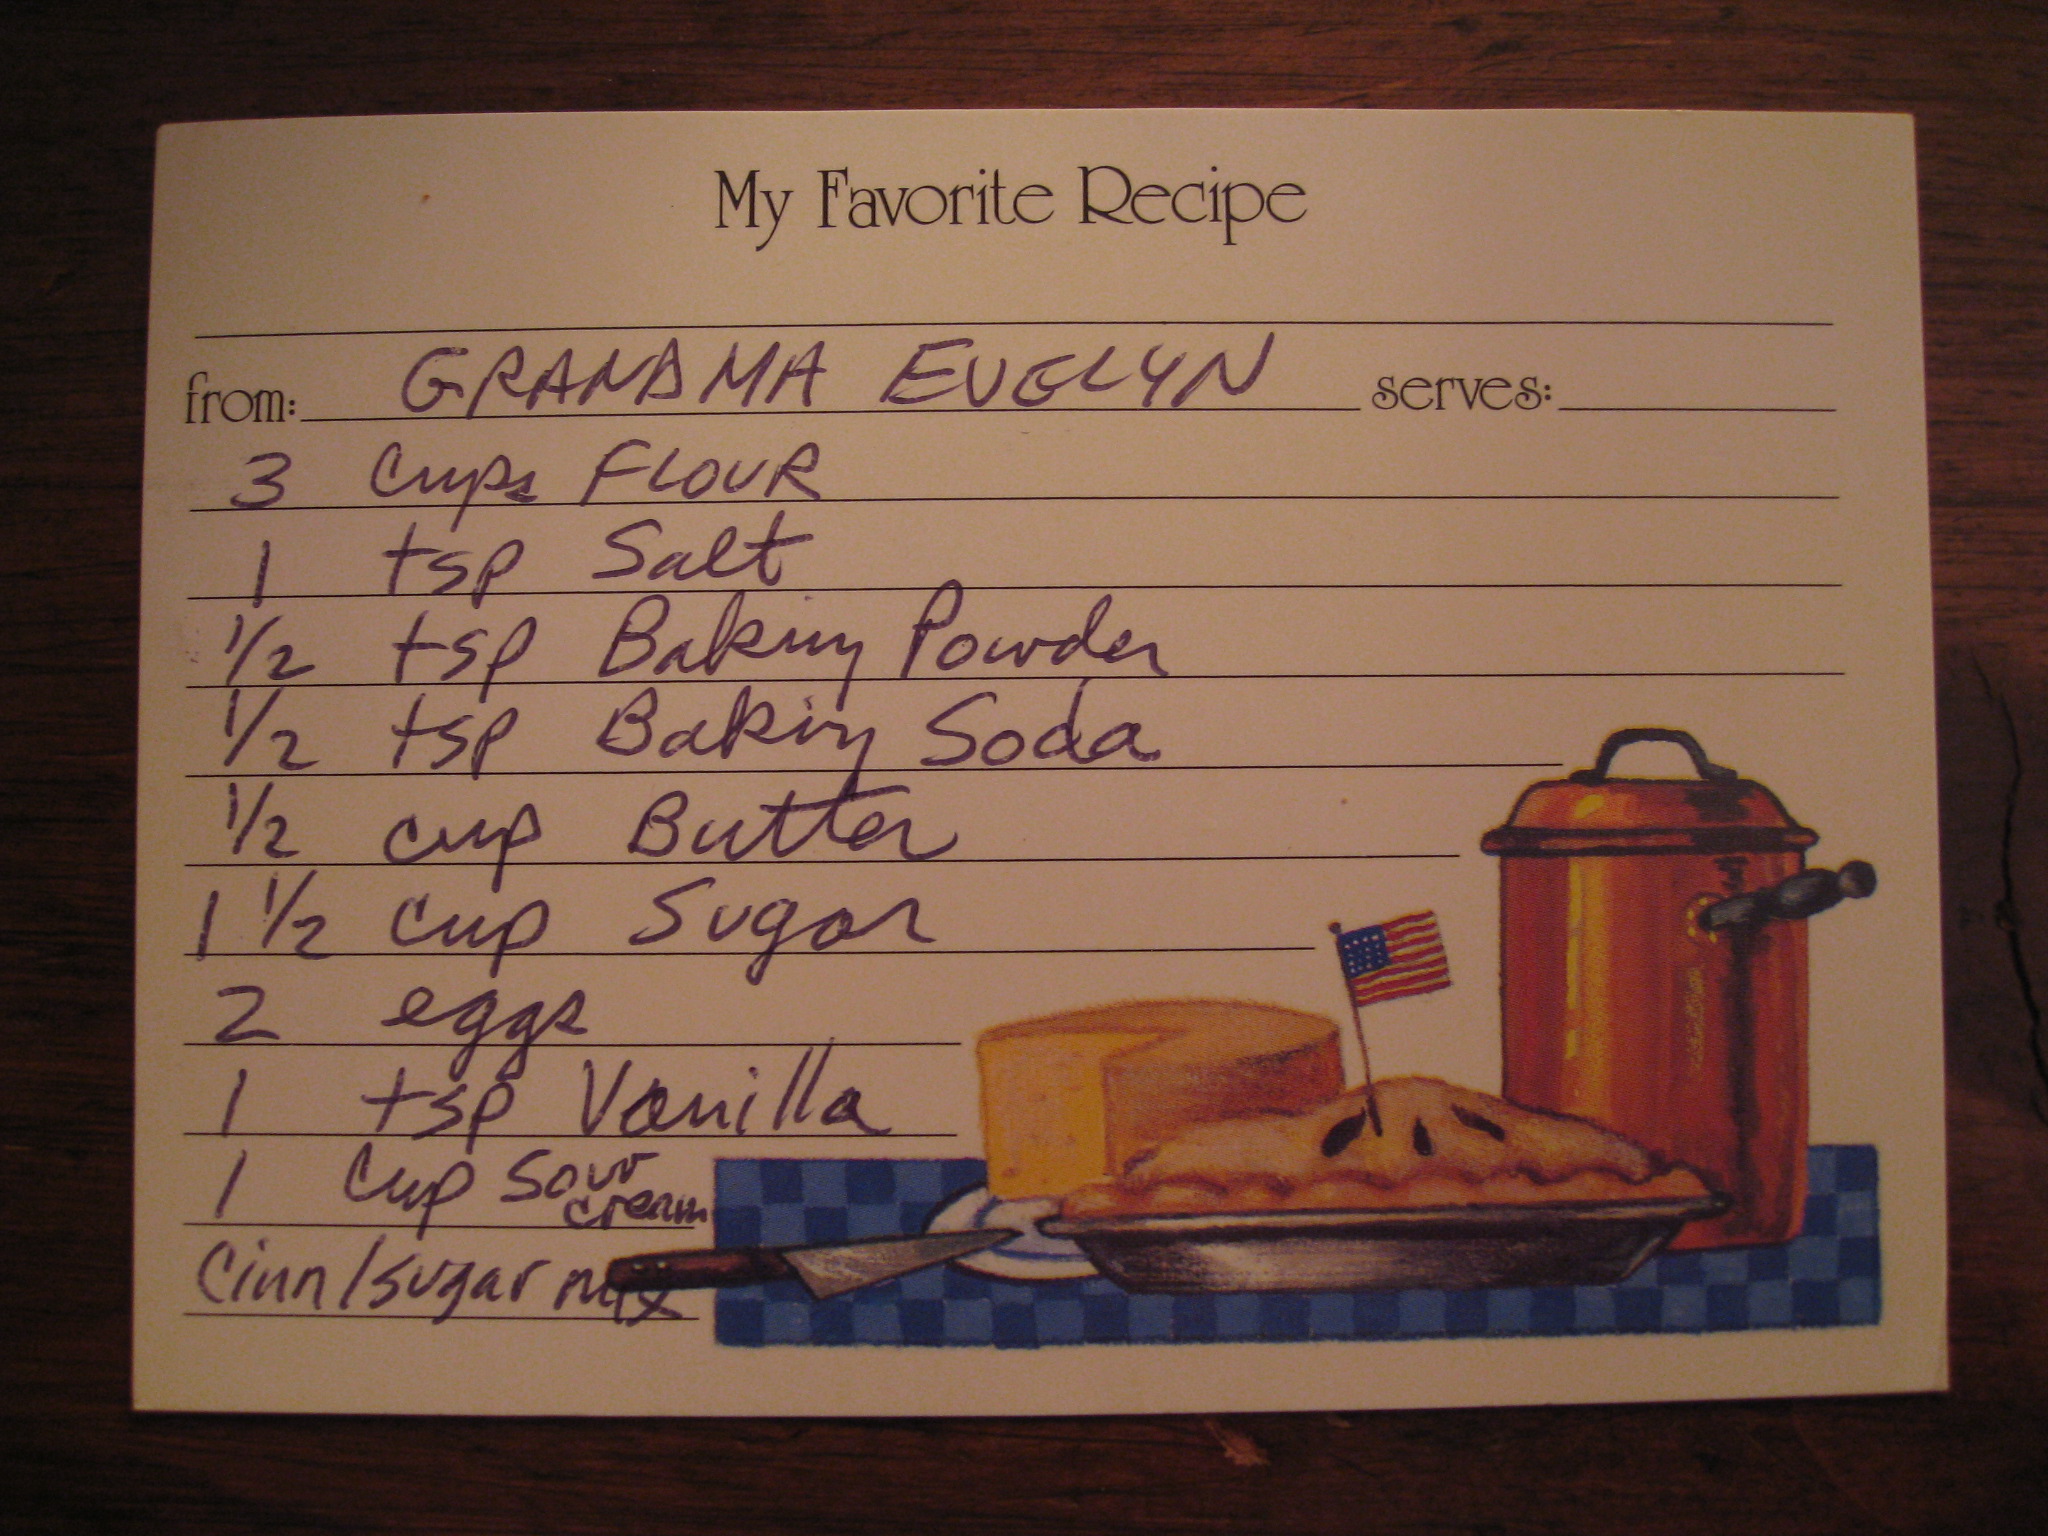 My Favorite Recipe
from: GRANDMA EVELYN serves:
3 cups FLOUR
1 tsp Salt
1/2 tsp Baking Powder
1/2 tsp Baking Soda
1/2 cup Butter
1 1/2 cup Sugar
2 eggs
1 tsp Vanilla
1 cup Sour
cream
Cinn/sugar mix